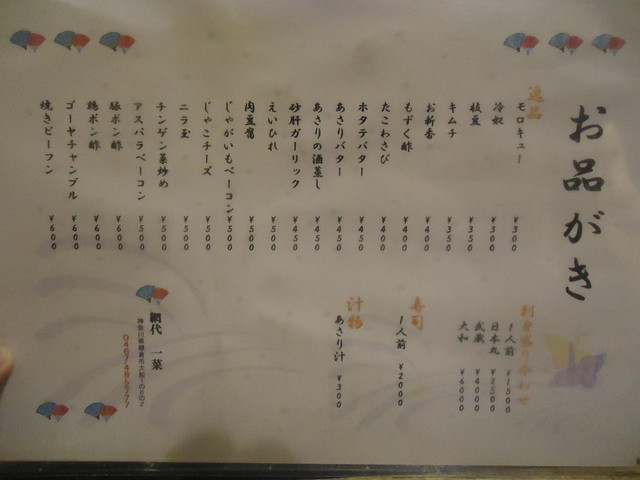 お品がき
逸品
モロキュー ¥300
冷奴 ¥300
枝豆 ¥350
キムチ ¥350
お新香 ¥400
もずく酢 ¥400
たこわさび ¥400
ホタテバター ¥450
あさりバター ¥450
あさりの酒蒸し ¥450
砂肝ガーリック ¥450
えいひれ ¥500
肉豆腐 ¥500
じゃがいもベーコン ¥500
じゃこチーズ ¥500
ニラ玉 ¥500
チンゲン菜炒め ¥500
アスパラベーコン ¥500
豚ポン酢 ¥600
鶏ポン酢 ¥600
ゴーヤチャンプル ¥600
焼きビーフン ¥600
刺身盛り合わせ
1人前 ¥1500
日本丸 ¥2500
武蔵 ¥4000
大和 ¥6000
寿司
1人前 ¥2000
汁物
あさり汁 ¥300
網代 一菜
神奈川県鎌倉市大船